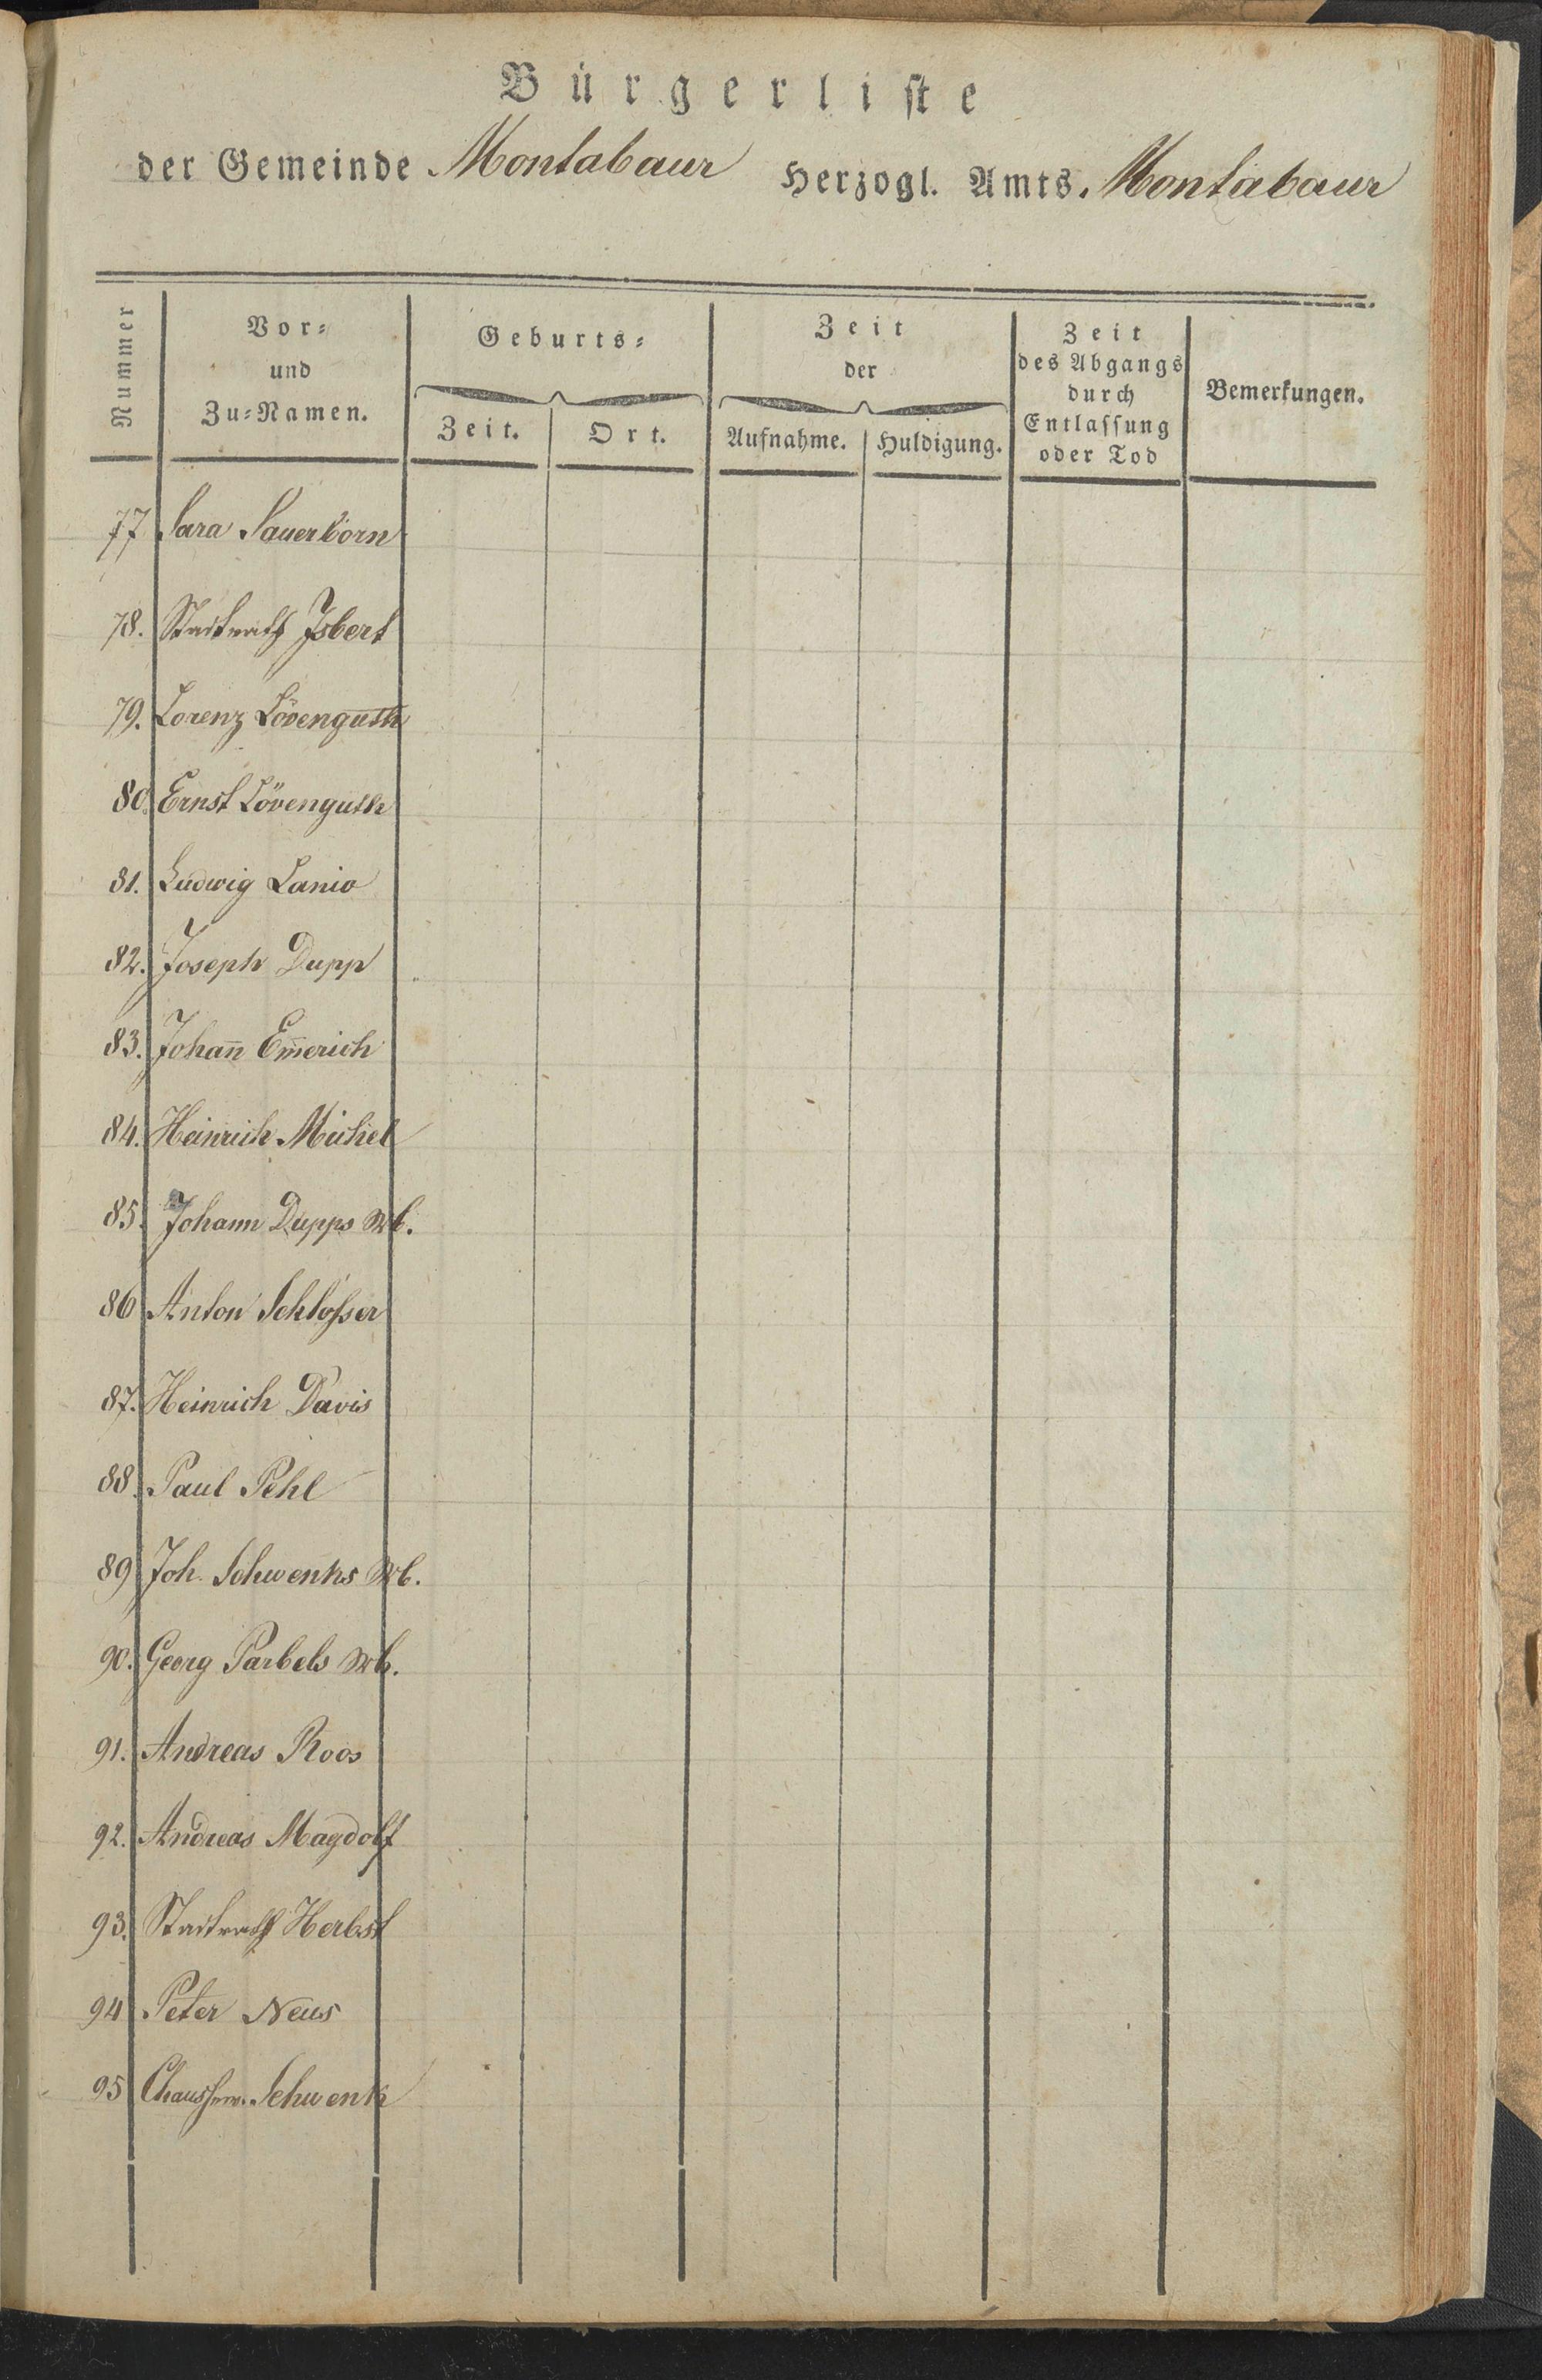 Bürgerliste
der Gemeinde Montabaur Herzogl. Amts Montabaur
Nummer
Vor-
und
Zu-Namen.
Geburts-
Zeit. Ort.
Zeit
der
Aufnahme. Huldigung.
Zeit
des Abgangs
durch
Entlassung
oder Tod
Bemerkungen.
77 Sara Sauerborn
78. Stadtrath Isbert
79. Lorenz Lövenguth
80. Ernst Lövenguth
81. Ludwig Lanio
82. Joseph Dupp
83. Johan̄ Em̄erich
84. Heinrich Michel
85. Johann Dupps Wb.
86 Anton Schloßer
87. Heinrich Davis
88. Paul Pehl
89 Joh. Schwenks Wb.
90. Georg Parbels Wb.
91. Andreas Roos
92. Andreas Magdolf
93. Stadtrath Herbst
94 Peter Neus
95 Schwenk